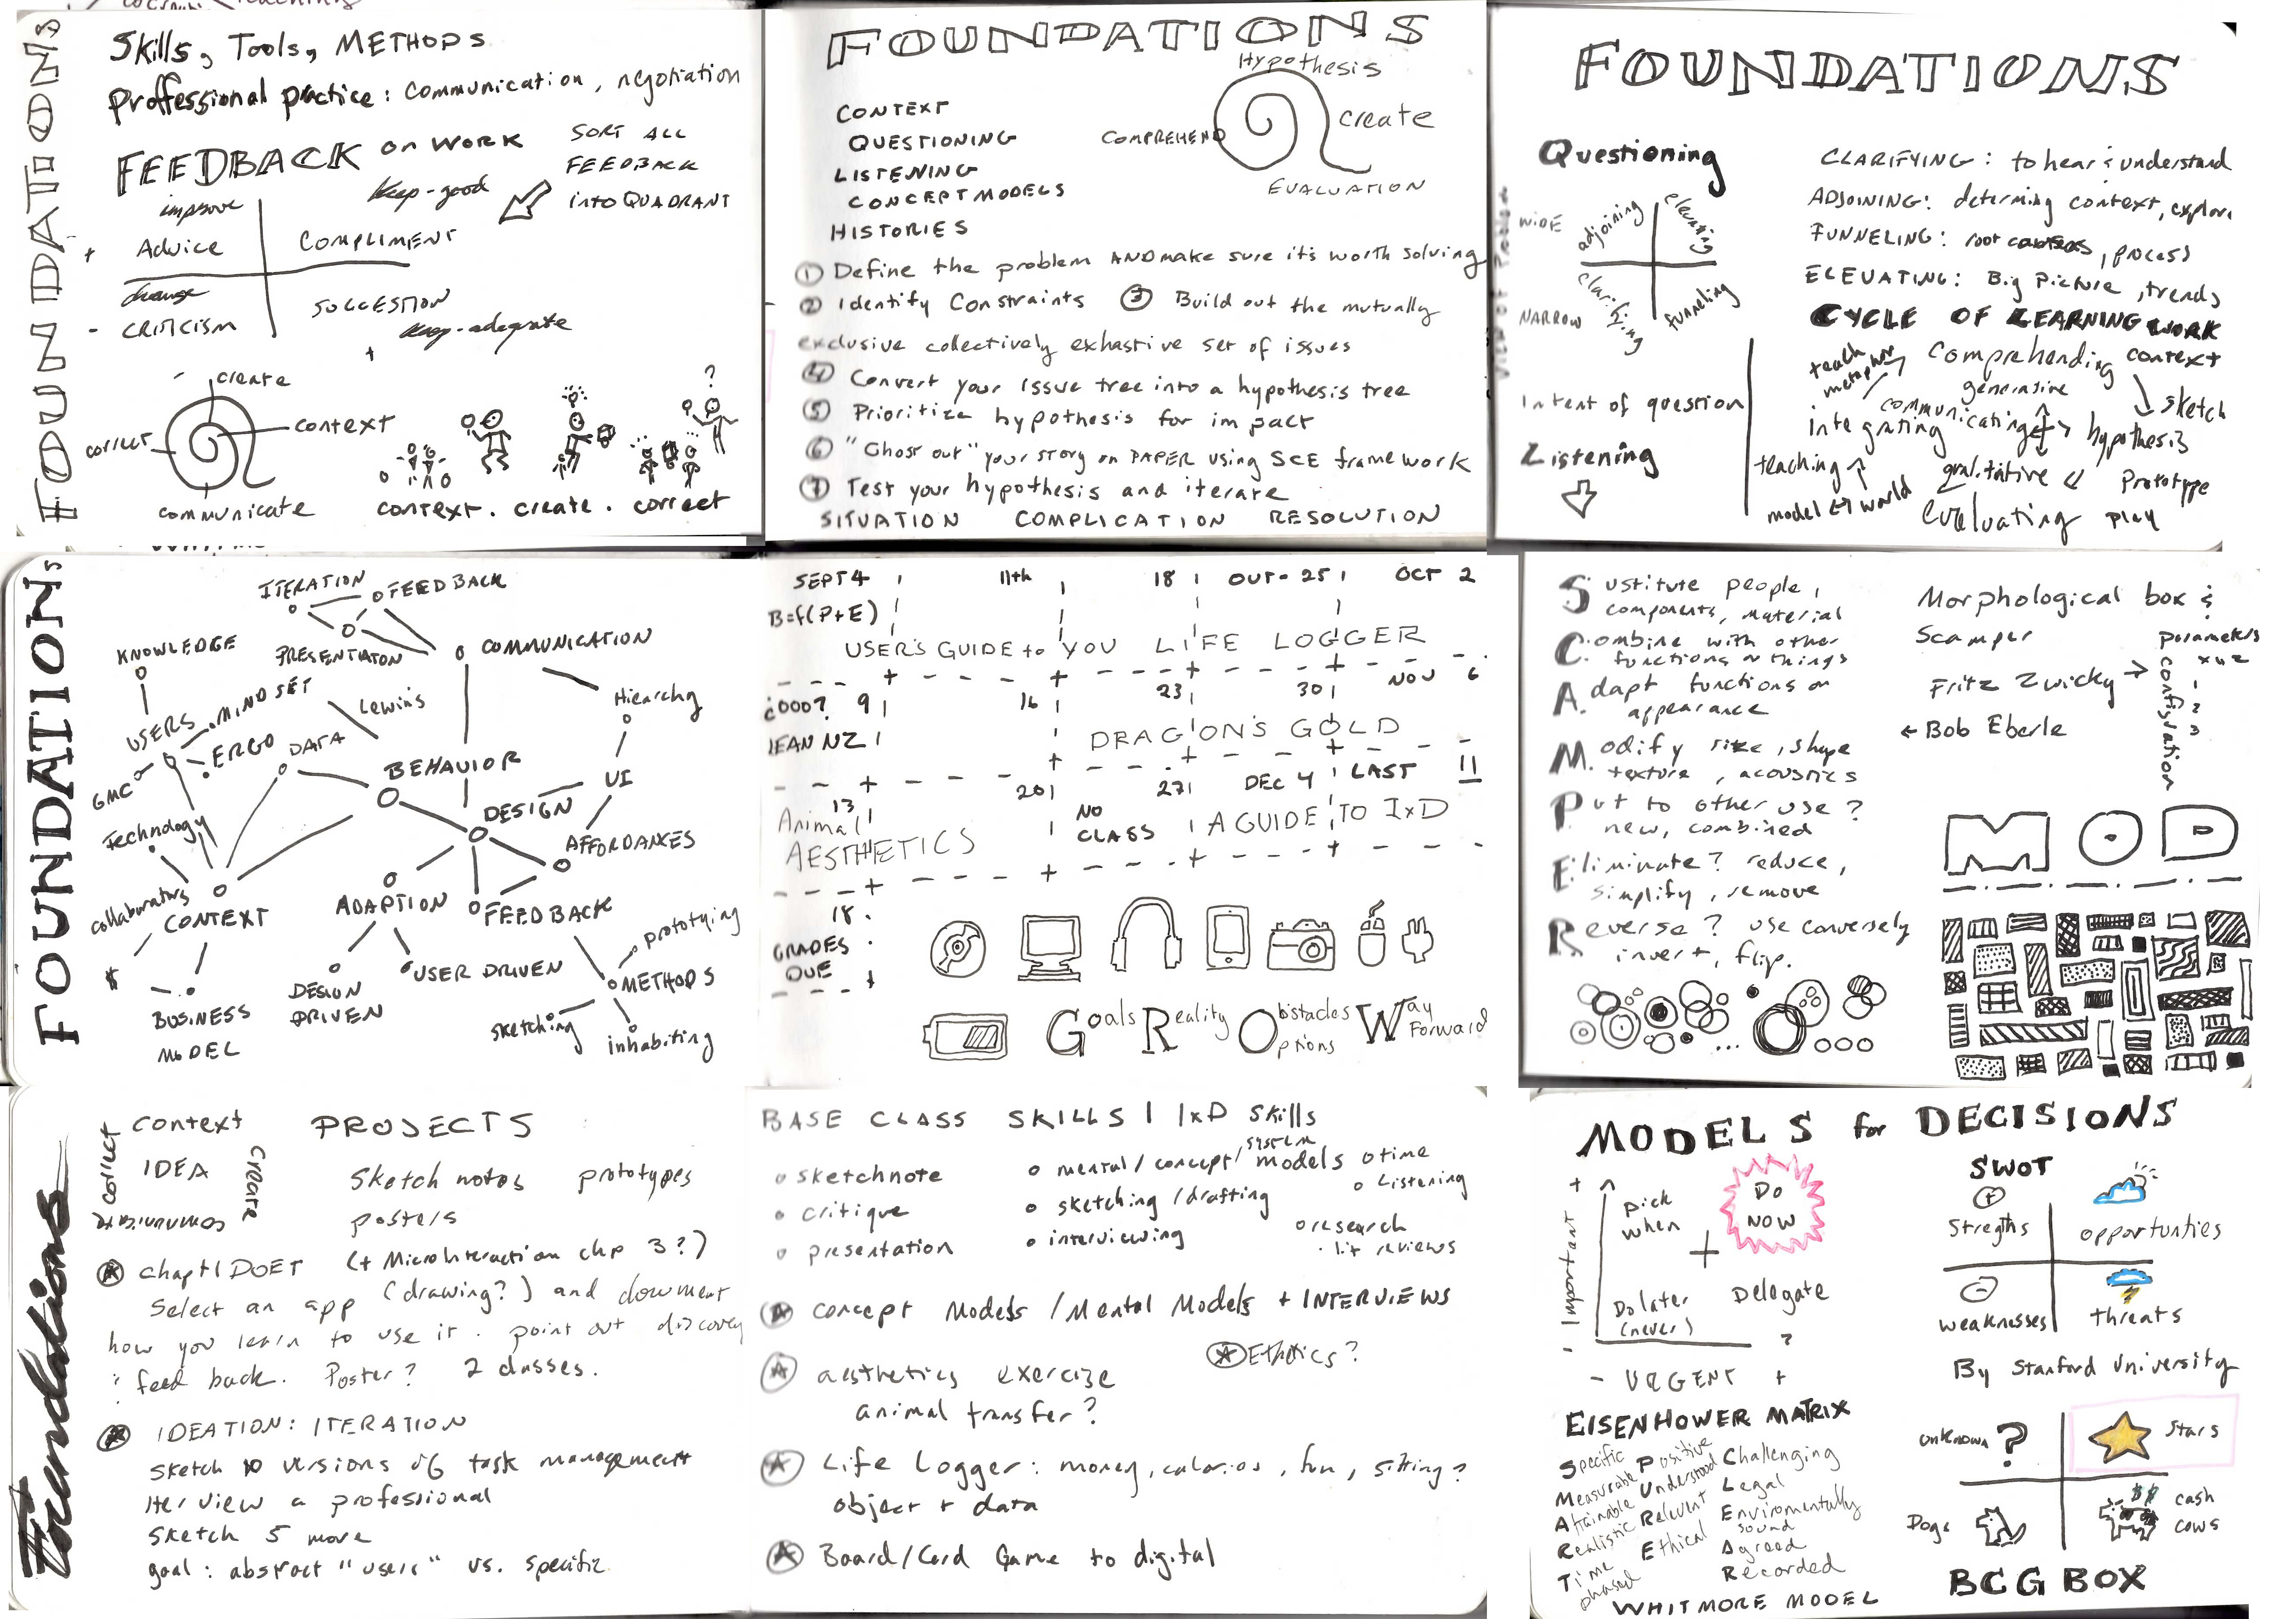 FOUNDATIONS
Skills, Tools, METHODS
Proffessional practice: communication, negotiation
FEEDBACK on WORK
SORT ALL
FEEDBACK
into QUADRANT
improve
Keep-good
Advice
COMPLIMENT
change
CRITICISM
SUGGESTION
Keep-adequate
create
context
correct
communicate
?
context. create. correct
FOUNDATIONS
Hypothesis
CONTEXT
QUESTIONING
LISTENING
CONCEPT MODELS
HISTORIES
COMPREHEND
create
EVALUATION
① Define the problem AND make sure it's worth solving
② Identify Constraints ③ Build out the mutually
exclusive collectively exhastive set of issues
④ Convert your issue tree into a hypothesis tree
⑤ Prioritize hypothesis for impact
⑥ "Ghost out" your story on PAPER using SCE framework
⑦ Test your hypothesis and iterate
SITUATION COMPLICATION RESOLUTION
FOUNDATIONS
Questioning
View of Problem
WIDE
NARROW
adjoining
elevating
clarifying
funneling
Intent of question
Listening
CLARIFYING: to hear & understand
ADJOINING: determing context, explore
FUNNELING: root causes, process
ELEVATING: Big Picture, trends
CYCLE OF LEARNING WORK
teach
metaphor
comprehending context
generative
sketch
communicating
integrating
hypothesis
teaching
qualitative
Prototype
model ↔ world
evaluating play
FOUNDATIONS
ITERATION
FEEDBACK
KNOWLEDGE
PRESENTIATON
COMMUNICATION
MINDSET
Lewin's
Hierarchy
USERS
ERGO
DATA
GMC
BEHAVIOR
UI
Technology
DESIGN
AFFORDANCES
collaborators
CONTEXT
ADAPTION
FEEDBACK
prototyping
$
DESIGN
DRIVEN
USER DRIVEN
METHODS
BUSINESS
MODEL
sketching
inhabiting
SEPT 4 11th 18 OUT-25 OCT 2
B=f(P+E)
USER'S GUIDE to YOU LIFE LOGGER
9 16 23 30 NOV 6
LEAN NZ
DRAGON'S GOLD
13 20 27 DEC 4 LAST 11
Animal
AESTHETICS
NO
CLASS
A GUIDE TO IxD
18
GRADES
DUE
Goals Reality Obstacles Way
options Forward
Sustitute people,
components, material
Combine with other
functions or things
Adapt functions or
appearance
Modify size, shape
texture, acoustics
Put to other use?
new, combined
Eliminate? reduce,
simplify, remove
Reverse? use conversely
invert, flip.
Morphological box &
Scamper
parameters
x y z
Fritz Zwicky →
← Bob Eberle
configuration
1
2
3
MOD
Foundations
context
correct
IDEA
create
communicate
PROJECTS
Sketch notes prototypes
posters
chapt 1 DOET (+ MicroInteraction chp 3?)
Select an app (drawing?) and document
how you learn to use it. point out discovery
& feed back. Poster? 2 classes.
IDEATION: ITERATION
sketch 10 versions of task management
Iterview a professional
sketch 5 more
goal: abstract "users" vs. specific
BASE CLASS SKILLS | IxD Skills
sketchnote
critique
presentation
system
mental/concept/models
sketching/drafting
interviewing
time
Listening
research
lit reviews
concept Models/Mental Models + INTERVIEWS
Ethics?
aesthetics exercize
animal transfer?
Life Logger: money, calories, fun, sitting?
object + data
Board/Card Game to digital
MODELS for DECISIONS
+
Important
-
Pick
when
DO
NOW
Do later
(never)
Delegate
?
- URGENT +
EISENHOWER MATRIX
SWOT
Stregths
opportunties
weaknesses
threats
By Stanford University
Specific Positive Challenging
Measurable Understood Legal
Attainable Relevent Enviromentally
sound
Realistic Ethical Agreed
Time Recorded
phased
WHITMORE MODEL
unknown ?
Stars
Dogs
$$
cash
cows
BCG BOX